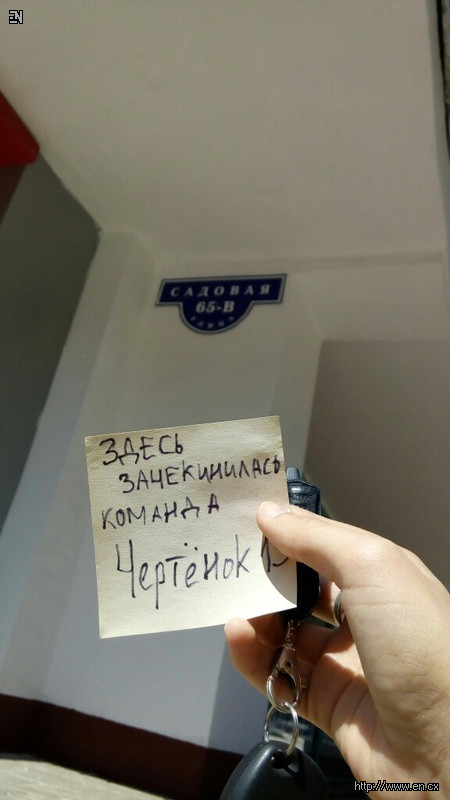 EN
САДОВАЯ
65-В
УЛИЦА
ЗДЕСЬ
ЗАЧЕКИНИЛАСЬ
КОМАНДА
Чертёнок
http://www.en.cx